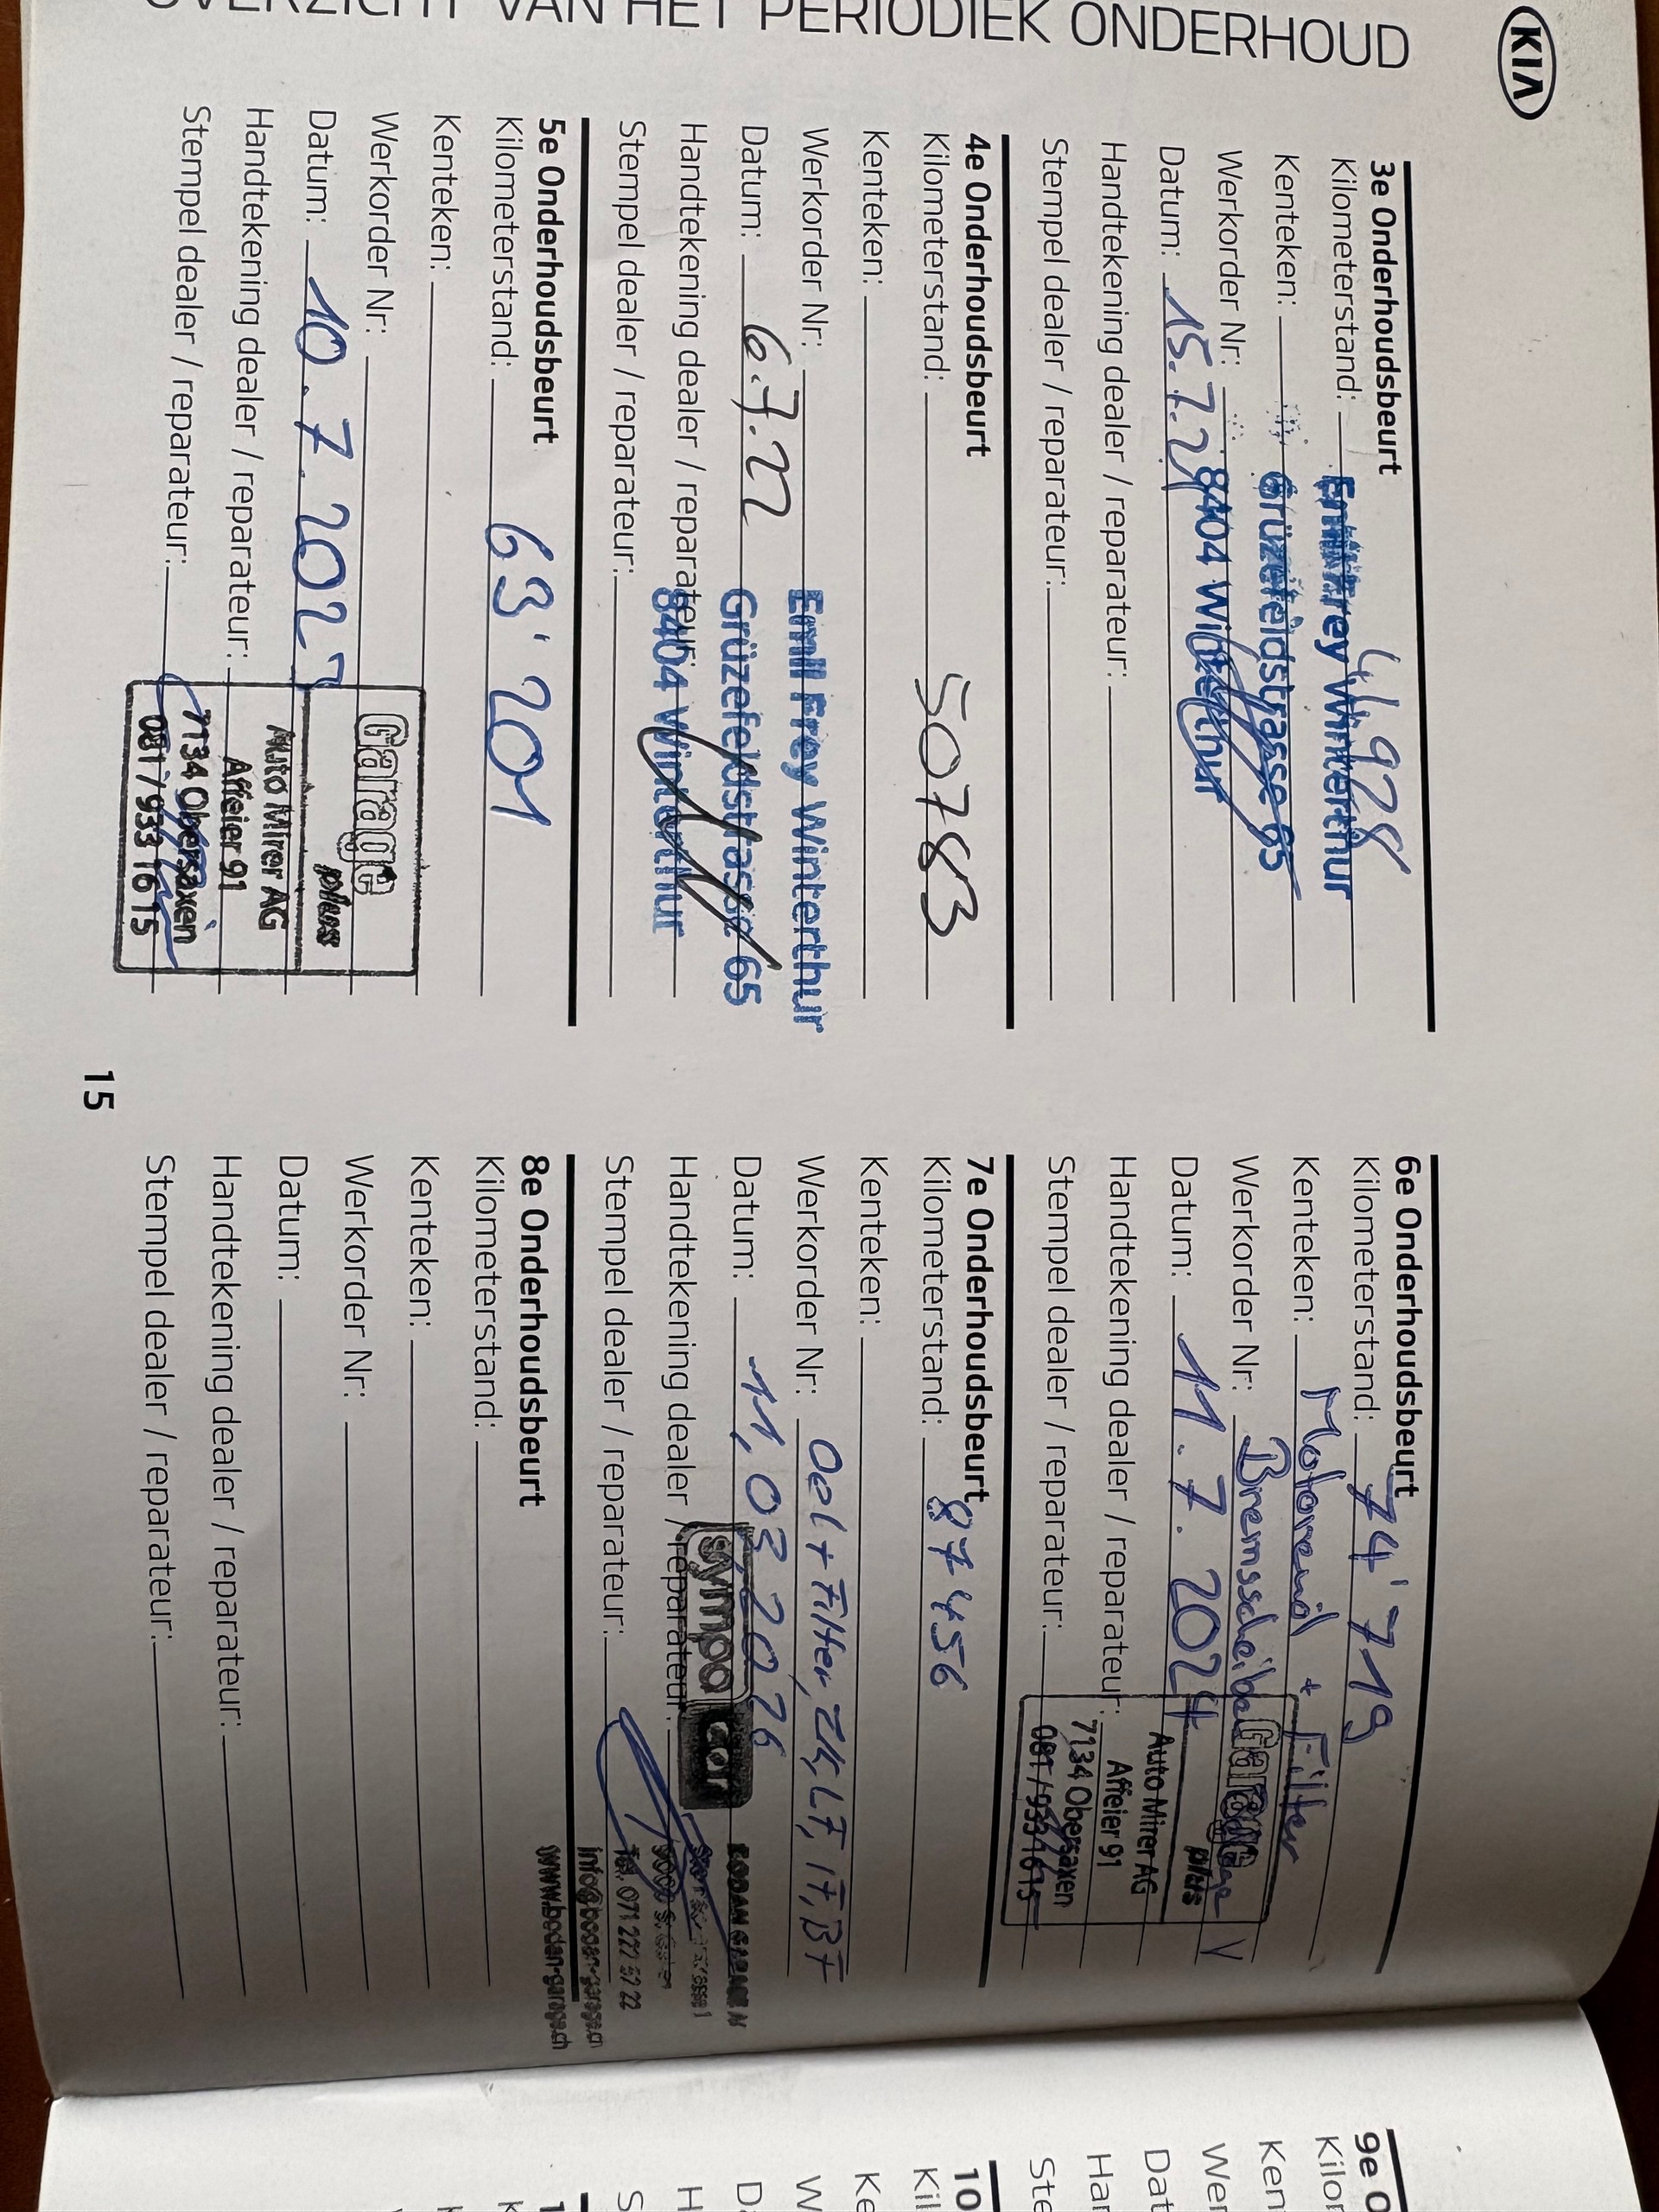 KIA
OVERZICHT VAN HET PERIODIEK ONDERHOUD
3e Onderhoudsbeurt
Kilometerstand: 41928
Emil Frey Winterthur
Kenteken:
Grüzefeldstrasse 65
Werkorder Nr:
8404 Winterthur
Datum: 15.7.21
Handtekening dealer / reparateur:
Stempel dealer / reparateur:
4e Onderhoudsbeurt
Kilometerstand: 50783
Kenteken:
Werkorder Nr:
Emil Frey Winterthur
Datum: 6.7.22
Grüzefeldstrasse 65
Handtekening dealer / reparateur:
8404 Winterthur
Stempel dealer / reparateur:
5e Onderhoudsbeurt
Kilometerstand: 63'201
Kenteken:
Werkorder Nr:
Garage
plus
Datum: 10.7.2023
Auto Mirer AG
Handtekening dealer / reparateur:
Affeier 91
7134 Obersaxen
Stempel dealer / reparateur:
081 / 933 16 15
15
6e Onderhoudsbeurt
Kilometerstand: 74'719
Kenteken: Motorenöl + Filter
Werkorder Nr: Bremsscheiben
Garage
plus
Datum: 11.7.2024
Auto Mirer AG
Handtekening dealer / reparateur:
Affeier 91
7134 Obersaxen
Stempel dealer / reparateur:
081 / 933 16 15
7e Onderhoudsbeurt
Kilometerstand: 87456
Kenteken:
Werkorder Nr: Oel + Filter, ZK, LF, IF, BF
Datum: 11,03,2026
sympa car
Handtekening dealer / reparateur:
Stempel dealer / reparateur:
Tel. 071 222 57 22
info@bodan-garage.ch
www.bodan-garage.ch
8e Onderhoudsbeurt
Kilometerstand:
Kenteken:
Werkorder Nr:
Datum:
Handtekening dealer / reparateur:
Stempel dealer / reparateur:
9e O
Kilo
Ken
Wer
Dat
Ha
Ste
10
Kil
Ke
W
Da
H
S